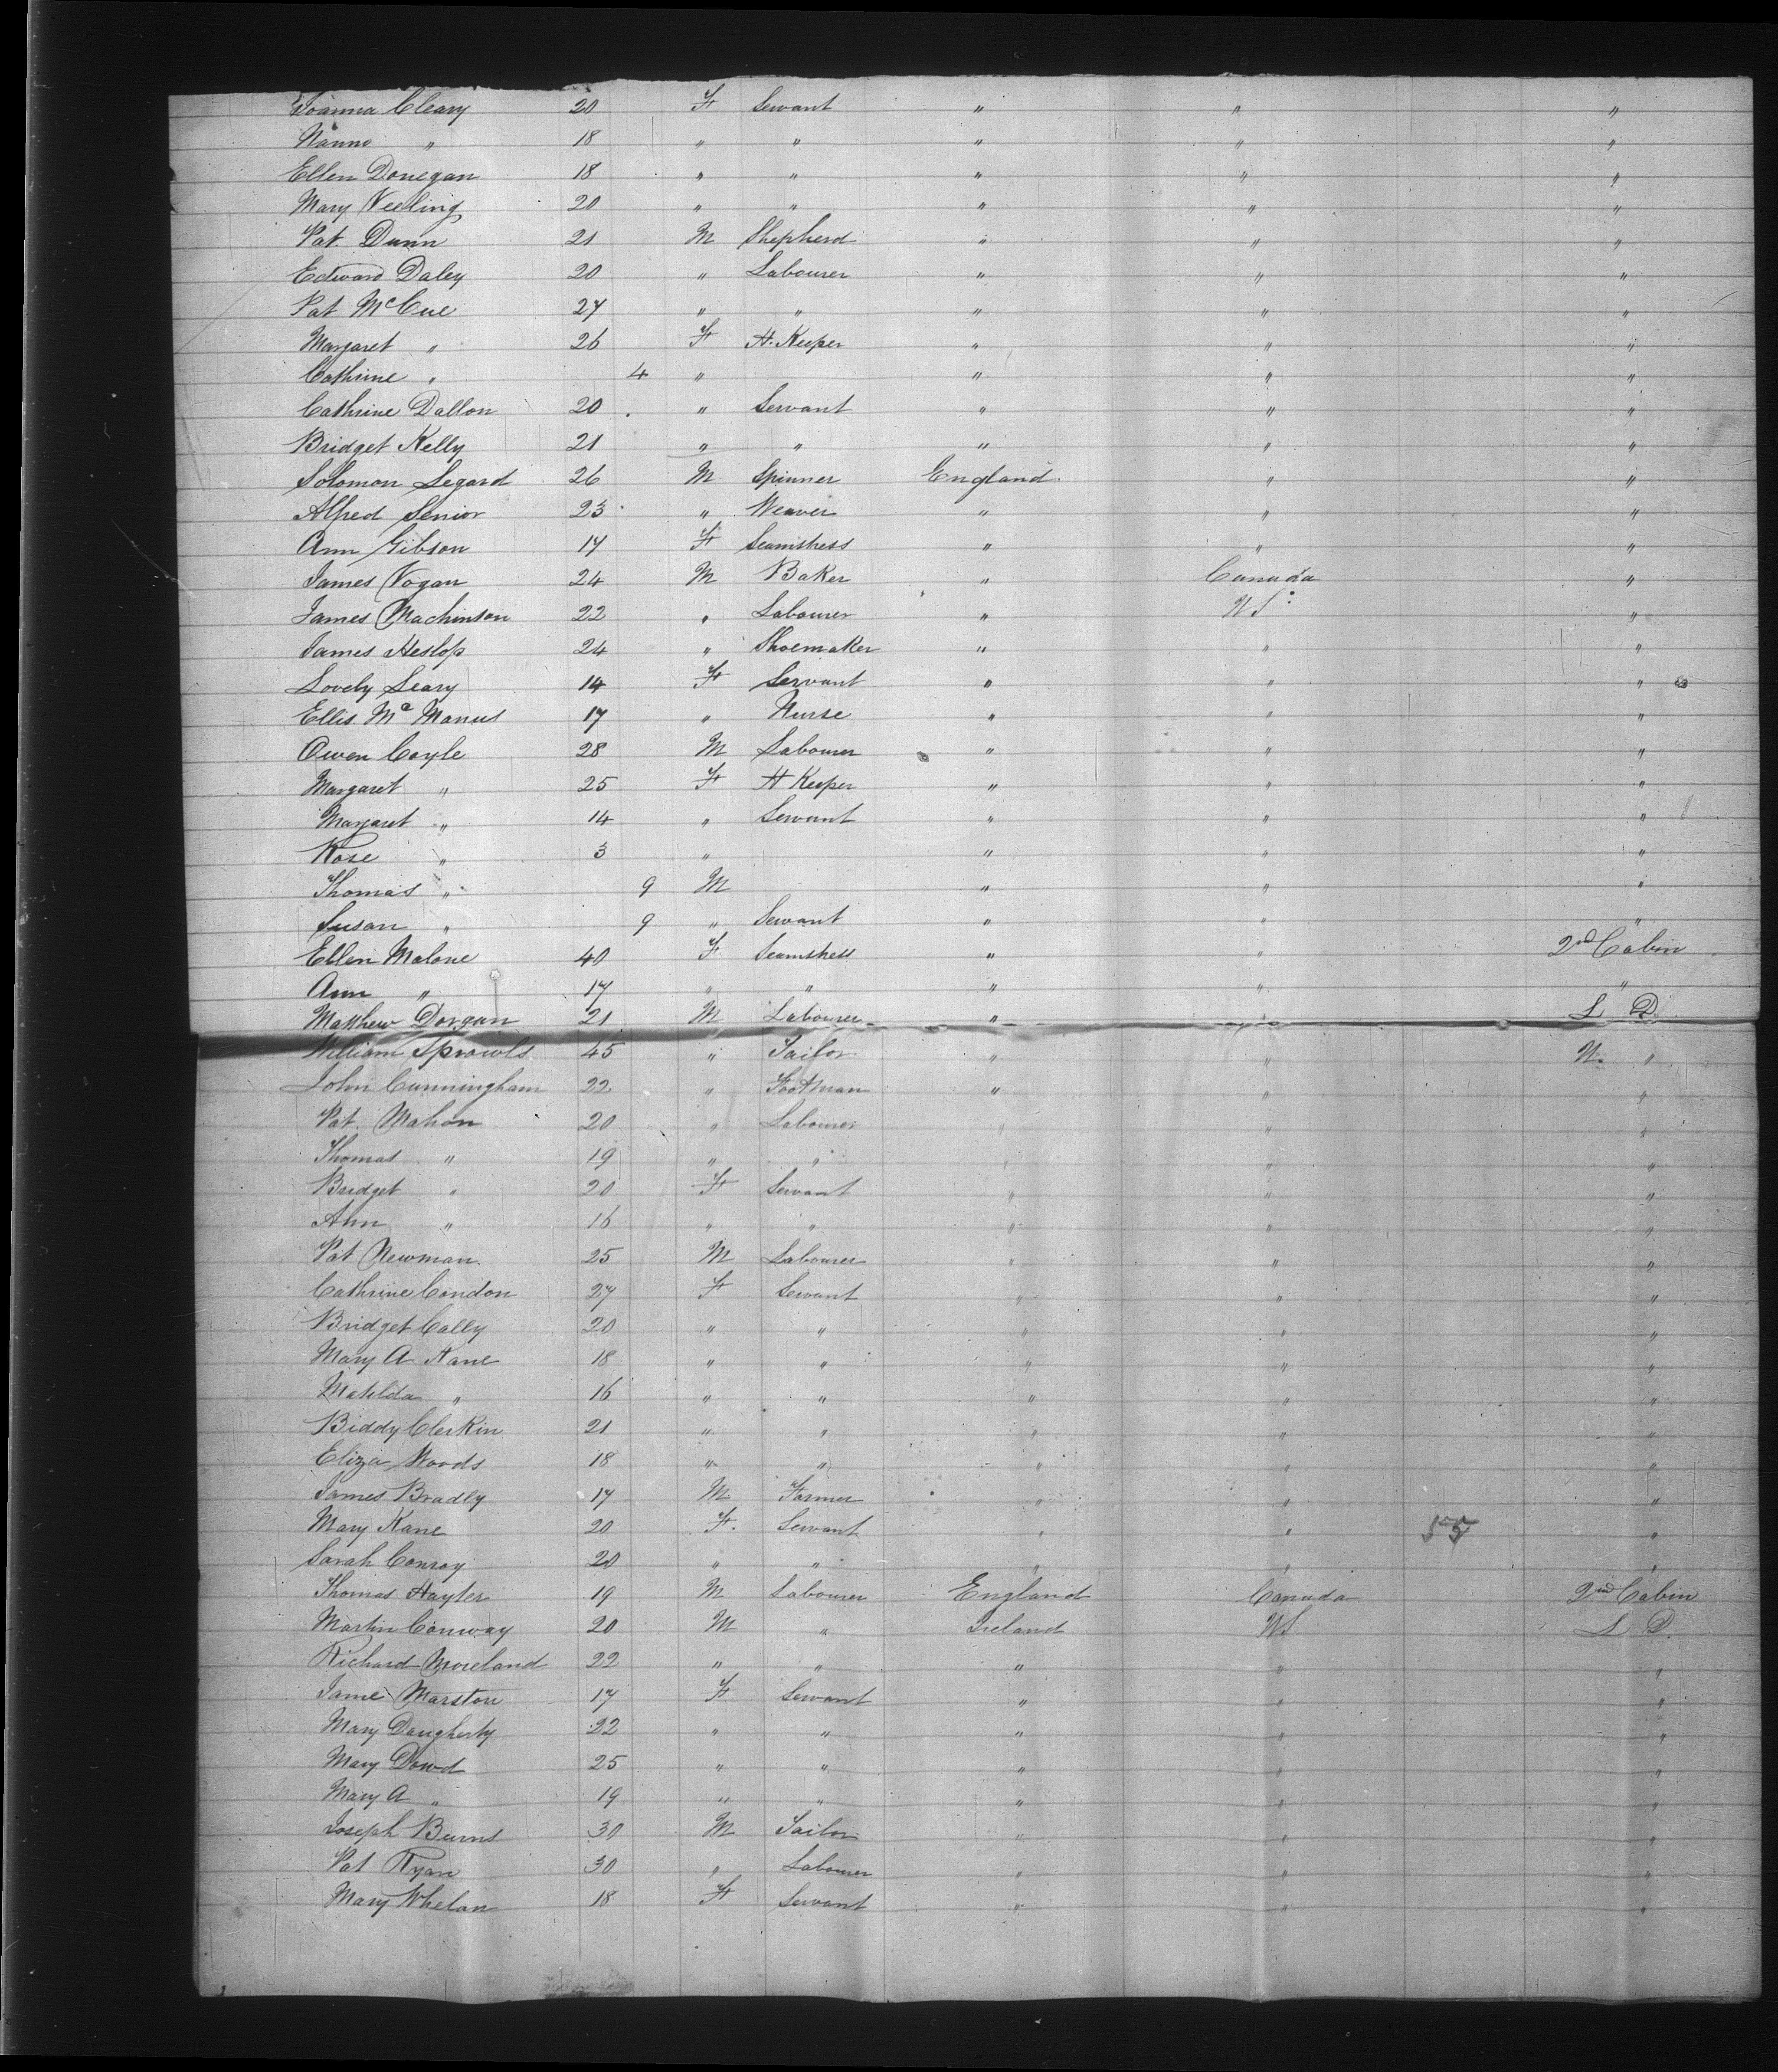 Joanna Cleary 20 F Servant " " "
Nanno " 18 " " " " "
Ellen Donegan 18 " " " " "
Mary Neeling 20 " " " " "
Pat. Dunn 21 M Shepherd " " "
Edward Daley 20 " Labourer " " "
Pat McCue 27 " " " " "
Margaret " 26 F H. Keeper " " "
Cathrine " 4 " " " "
Cathrine Dallon 20 " Servant " " "
Bridget Kelly 21 " " " " "
Solomon Segard 26 M Spinner England " "
Alfred Senior 23 " Weaver " " "
Ann Gibson 17 F Seamstress " " "
James Vogan 24 M Baker " Canada "
James Machinson 22 " Labourer " US "
James Heslop 24 " Shoemaker " " "
Lovely Leary 14 F Servant " " "
Ellis Mc Manus 17 " Nurse " " "
Owen Coyle 28 M Labourer " " "
Margaret " 25 F H Keeper " " "
Margaret " 14 " Servant " " "
Rose " 3 " " " "
Thomas " 9 M " " "
Susan " 9 " Servant " " "
Ellen Malone 40 F Seamstress " " 2nd Cabin
Ann " 17 " " " " "
Matthew Dorgan 21 M Labourer " " L D
William Sprowls 45 " Tailor " " U. "
John Cunningham 22 " Footman " " "
Pat. Mahon 20 " Labourer " " "
Thomas " 19 " " " " "
Bridget " 20 F Servant " " "
Ann " 16 " " " " "
Pat Newman 25 M Labourer " " "
Cathrine Condon 27 F Servant " " "
Bridget Cally 20 " " " " "
Mary A Kane 18 " " " " "
Matilda " 16 " " " " "
Biddy Clerkin 21 " " " " "
Eliza Woods 18 " " " " "
James Bradly 17 M Farmer " " "
Mary Kane 20 F. Servant " " "
Sarah Conroy 20 " " " " "
Thomas Hayter 19 M Labourer England Canada 2nd Cabin
Martin Conway 20 M " Ireland US L D.
Richard Moreland 22 " " " " "
Jane Marston 17 F Servant " " "
Mary Daugherty 22 " " " " "
Mary Dowd 25 " " " " "
Mary A " 19 " " " " "
Joseph Burns 30 M Tailor " " "
Pat Ryan 30 " Labourer " " "
Mary Whelan 18 F Servant " " "